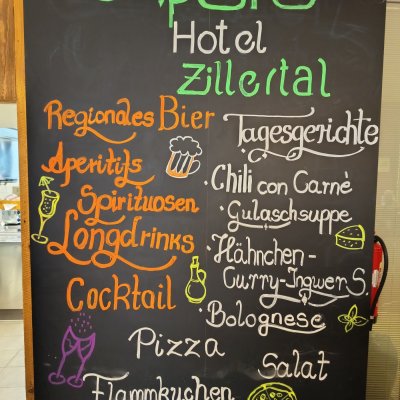 Hotel
Zillertal
Regionales Bier
Aperitifs
Spirituosen
Longdrinks
Cocktail
Tagesgerichte
· Chili con Carnè
· Gulaschsuppe
· Hähnchen-
Curry-Ingwer S.
· Bolognese
Pizza
Salat
Flammkuchen